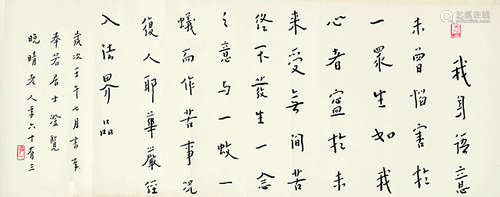 我身語意
未曾惱害於
一眾生如我
心者寧於未
來受無間苦
終不發生一念
之意與一蚊一
蟻而作苦事況
復人耶華嚴經
入法界品
歲次壬午七月書奉
奉若居士瑩覽
晚晴老人年六十有三